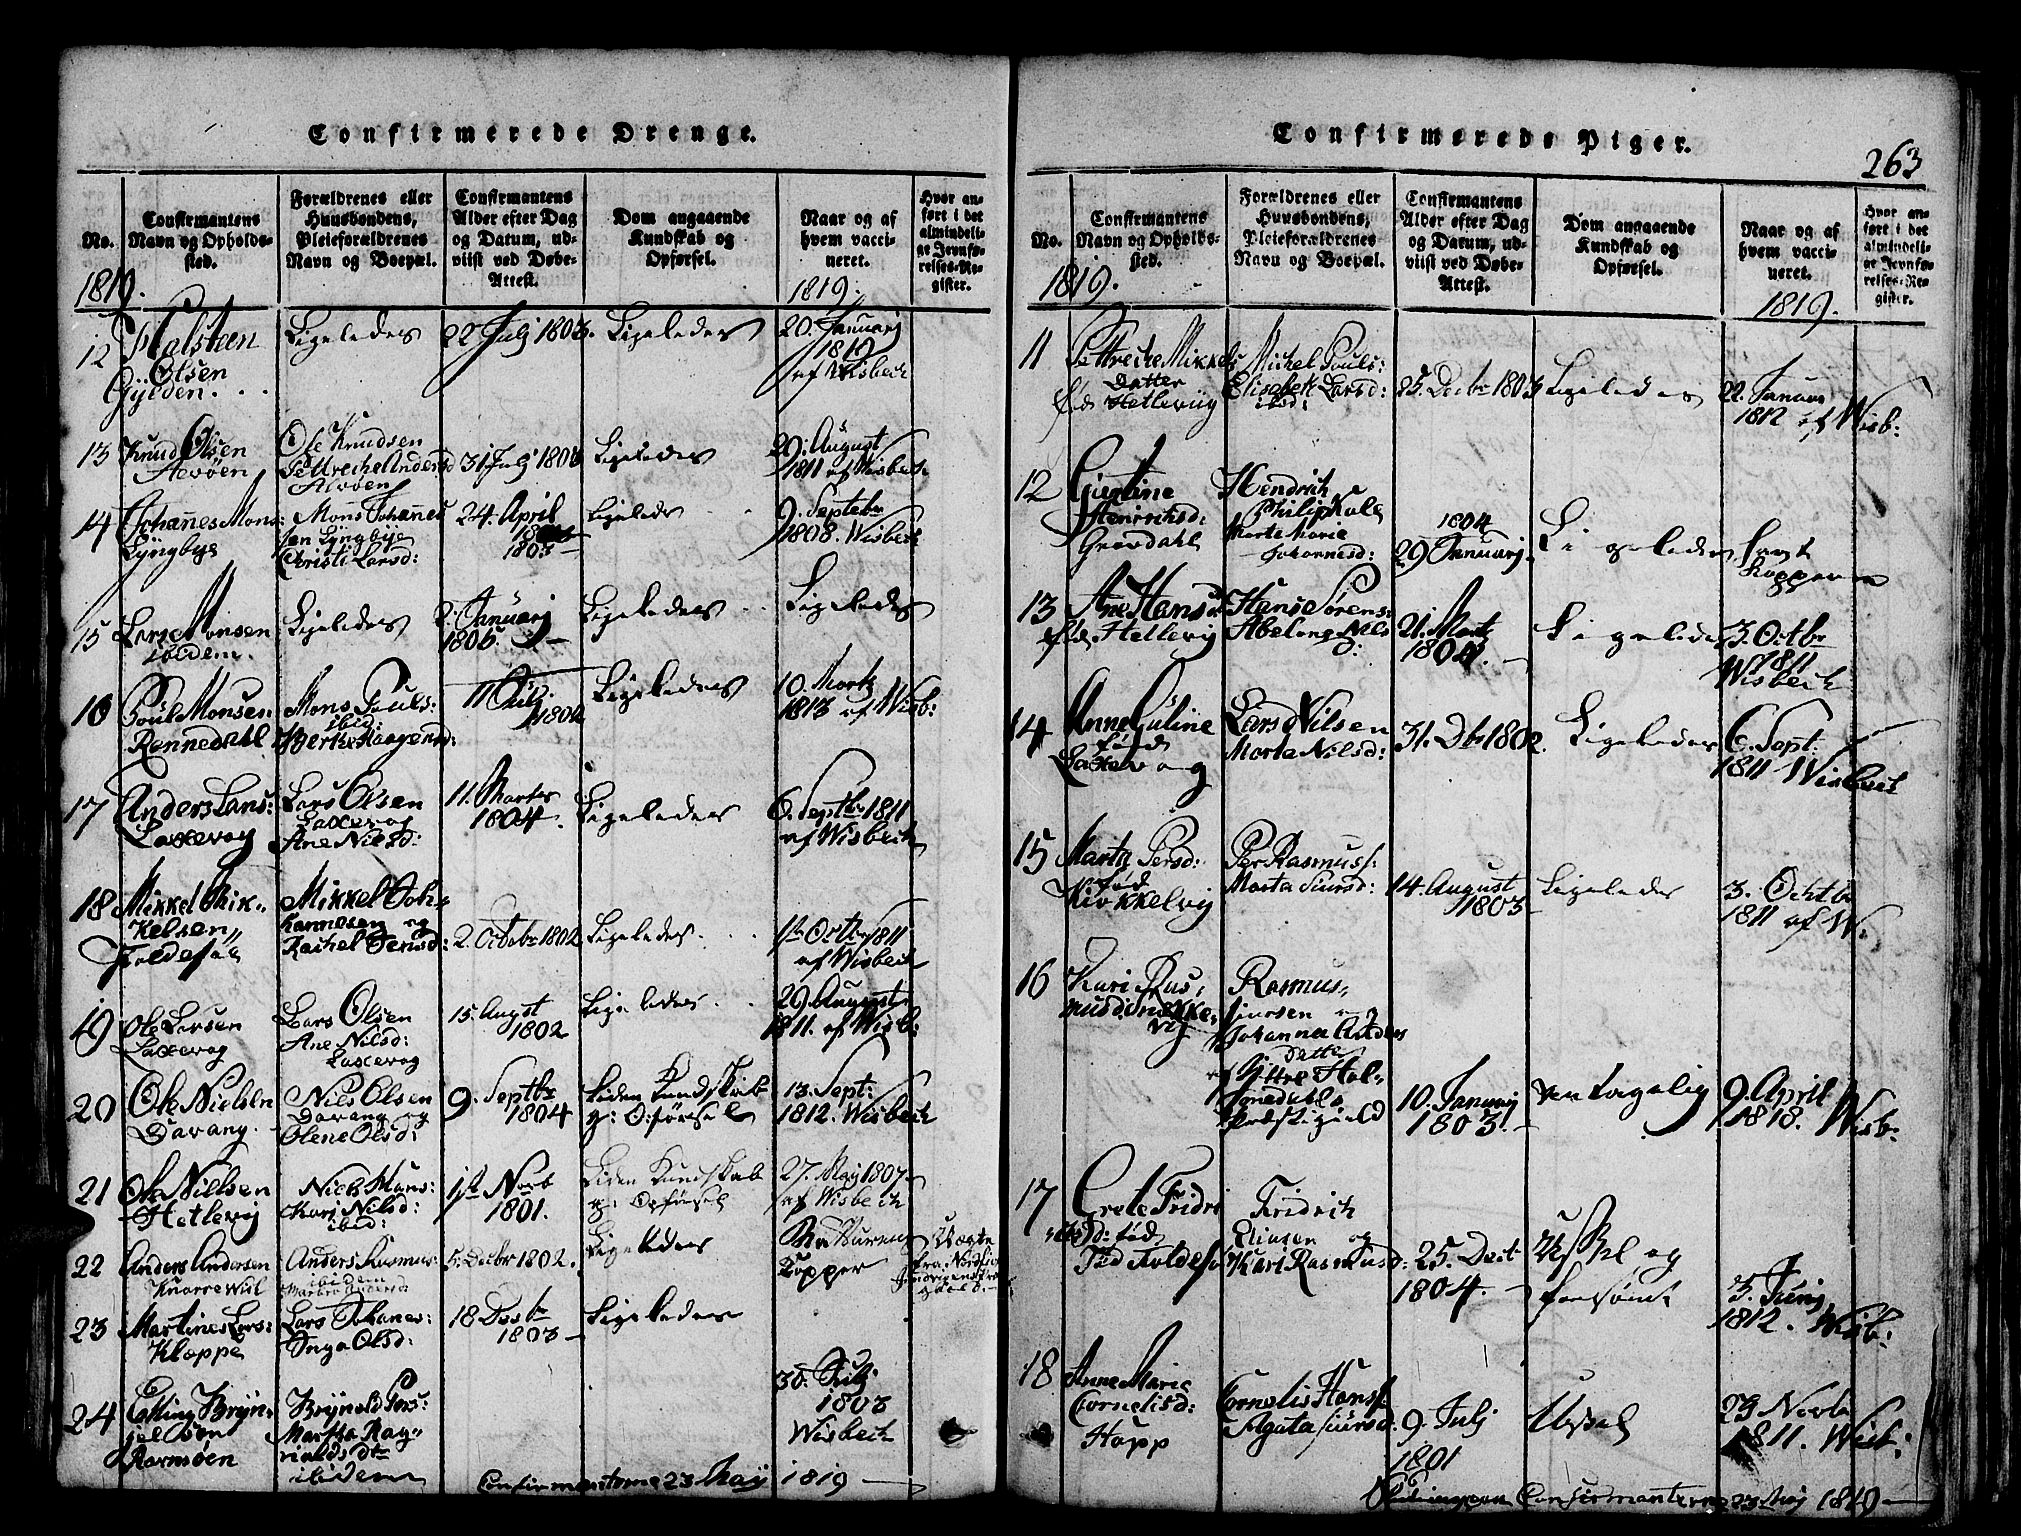 Confirmerede Drenge.
No.
Confirmantens Navn og Opholdssted.
Forældrenes eller Huusbondens, Pleieforældrenes Navn og Boepæl.
Confirmantens Alder efter Dag og Datum, udviist ved Døbe-Attest.
Dom angaaende Kundskab og Opførsel.
Naar og af hvem vaccineret.
Hvor anført i det almindelige Jevnførelses-Register.
1819.
1819.
12 Halsteen Olsen Gyelden. Ligeledes 22 Julj 1803. Ligeledes 20. Januarj 1812 af Wisbech
13 Knud Olsen Alvøen Ole Knudsen Alvøen 31 Julj 1803 Ligeledes 29. August 1811 af Wisbech
14 Johanes Mons: Lyngbye Mons Johanes sen Lyngbye Christi Larsd: 24. April 1803 Ligeledes 9. Septebr 1808. Wisbech
15 Larse Monsen ibidem. Ligeledes 2. Januarj 1805. Ligeledes Ligeledes
16 Poul Monsen Rennedahl Mons Pouls: ibid: 11 Julj 1802 Ligeledes 10. Martz 1813 af Wisb:
17 Anders Lars: Laxevog Lars Olsen Laxevog Ane Nilsd: 11. Martz 1804. Ligeledes 6. Septbr 1811 af Wisbech
18 Mikkel Mikkelsen Mikkel Johannesen og Rachel 2. Octobr 1802 Ligeledes. 1ste Octbr 1811 af Wisbech
19 Ole Larsen Laxevog Lars Olsen Ane Nilsd: Laxevog 15. Augst 1802 Ligeledes. 29. August 1811. af Wisb:
20 Ole Nielsen Davang. Nils Olsen Davang og Olene Olsd: 9. Septbr 1804 Liden Kundskab g: Opførsel 13. Sept: 1812. Wisbech
21 Ole Nielsen Hetlevig Niels Mans: Karj Nilsd: ibid: 1ste Novb 1801. Liden Kundskab g: Opførsel 27. May 1807 af Wisbech
22 Anders Andersen Knarrewiil Anders Rasmus: ibidem 5. Decbr 1802. Ligeledes Kopper
23 Martines Lars: Kloppe Lars Johanes: Inga Olsd: 18 Decbr 1803 Ligeledes
24 Brynjelsen Ramsøen Bryneld Pers: Martha ibidem 30. Julj 1803 Wisbech
Confirmanterne 23 Maij 1819
Confirmerede Piger.
263
No.
Confirmantens Navn og Opholdssted.
Forældrenes eller Huusbondens, Pleieforældrenes Navn og Boepæl.
Confirmantens Alder efter Dag og Datum, udviist ved Døbe-Attest.
Dom angaaende Kundskab og Opførsel.
Naar og af hvem vaccineret.
Hvor anført i det almindelige Jevnførelses-Register.
1819.
1819.
11 Mikkels Datter Hetlevig Michel Pouls: Elisabek Larsd: ibid: 25. Decbr 1803 Ligeledes 22. Januar 1812 af Wisb:
12 Giertine Henrichsd: Grovdahl Hendrich Philip Marte Marie Johannesd: 1804 29 Januarj. Ligeledes havt Kopperne
13 Ane Hansd Hetlevig Hans Sørens: 21. Martz 1804. Ligeledes 3. Octbr 1811 Wisbech
14 Anne Guline fød Laxevog Lars Nilsen Marta Nilsd: 31. Dbr 1802. Ligeledes 6. Sept: 1811 Wisbech
15 Marta Persd: fød Per Rasmuss: Marta Siursd: 14. August 1803 Ligeledes 3. Octb 1811 af W:
16 Kari Rasmusd: Rasmus Siursen og Johanna Anders datter Præstegield 10. Januarj 1803. 9. April 1818. Wisb:
17 Grete Fridri fød Fridrich Eliasen og Kari Rasmusd: 25. Dect 1804. Uskel og forsømt 3. Junj 1812. Wisb:
18 Anne Marie Cornelisd: Hopp Cornelis Hanss: Agata Siursd: 9. Julj 1801 Uskel 29 Novbr 1811. Wisb:
Confirmanterne 23 Maj 1819